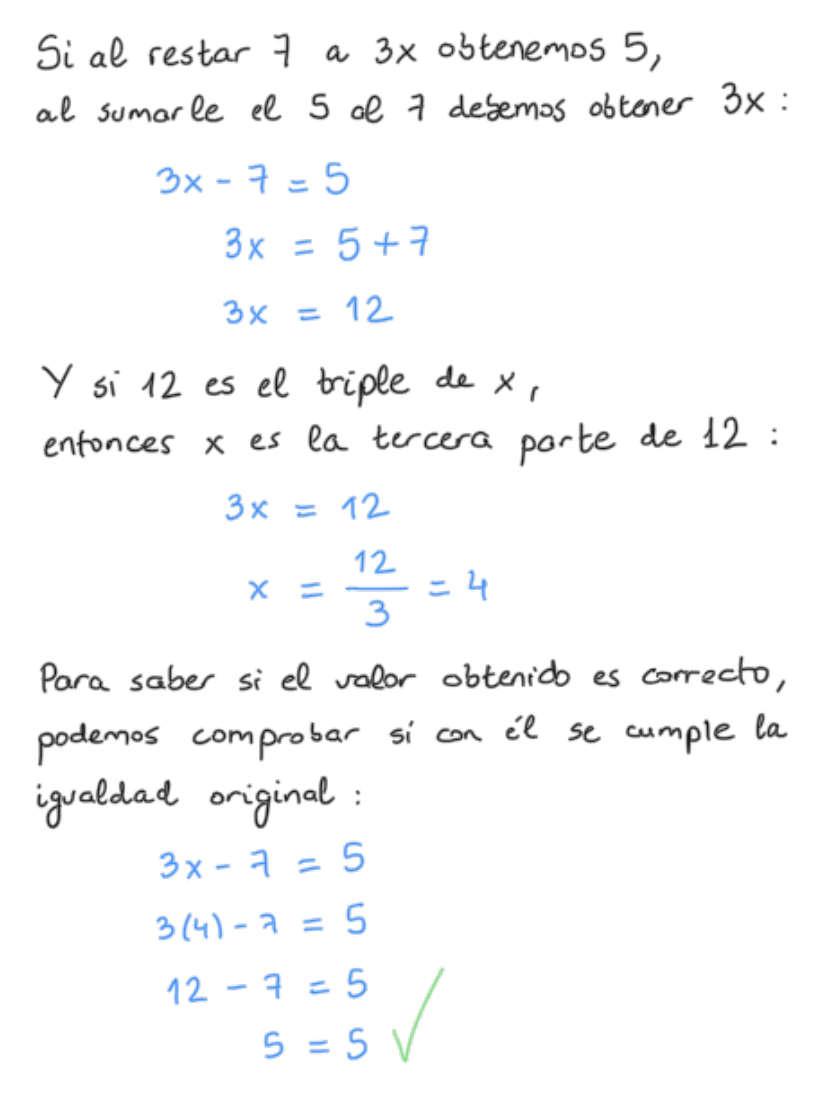 Si al restar 7 a 3x obtenemos 5,
al sumarle el 5 al 7 debemos obtener 3x :
3x - 7 = 5
3x = 5 + 7
3x = 12
Y si 12 es el triple de x,
entonces x es la tercera parte de 12 :
3x = 12
x = 12/3 = 4
Para saber si el valor obtenido es correcto,
podemos comprobar si con él se cumple la
igualdad original :
3x - 7 = 5
3(4) - 7 = 5
12 - 7 = 5
5 = 5 ✓